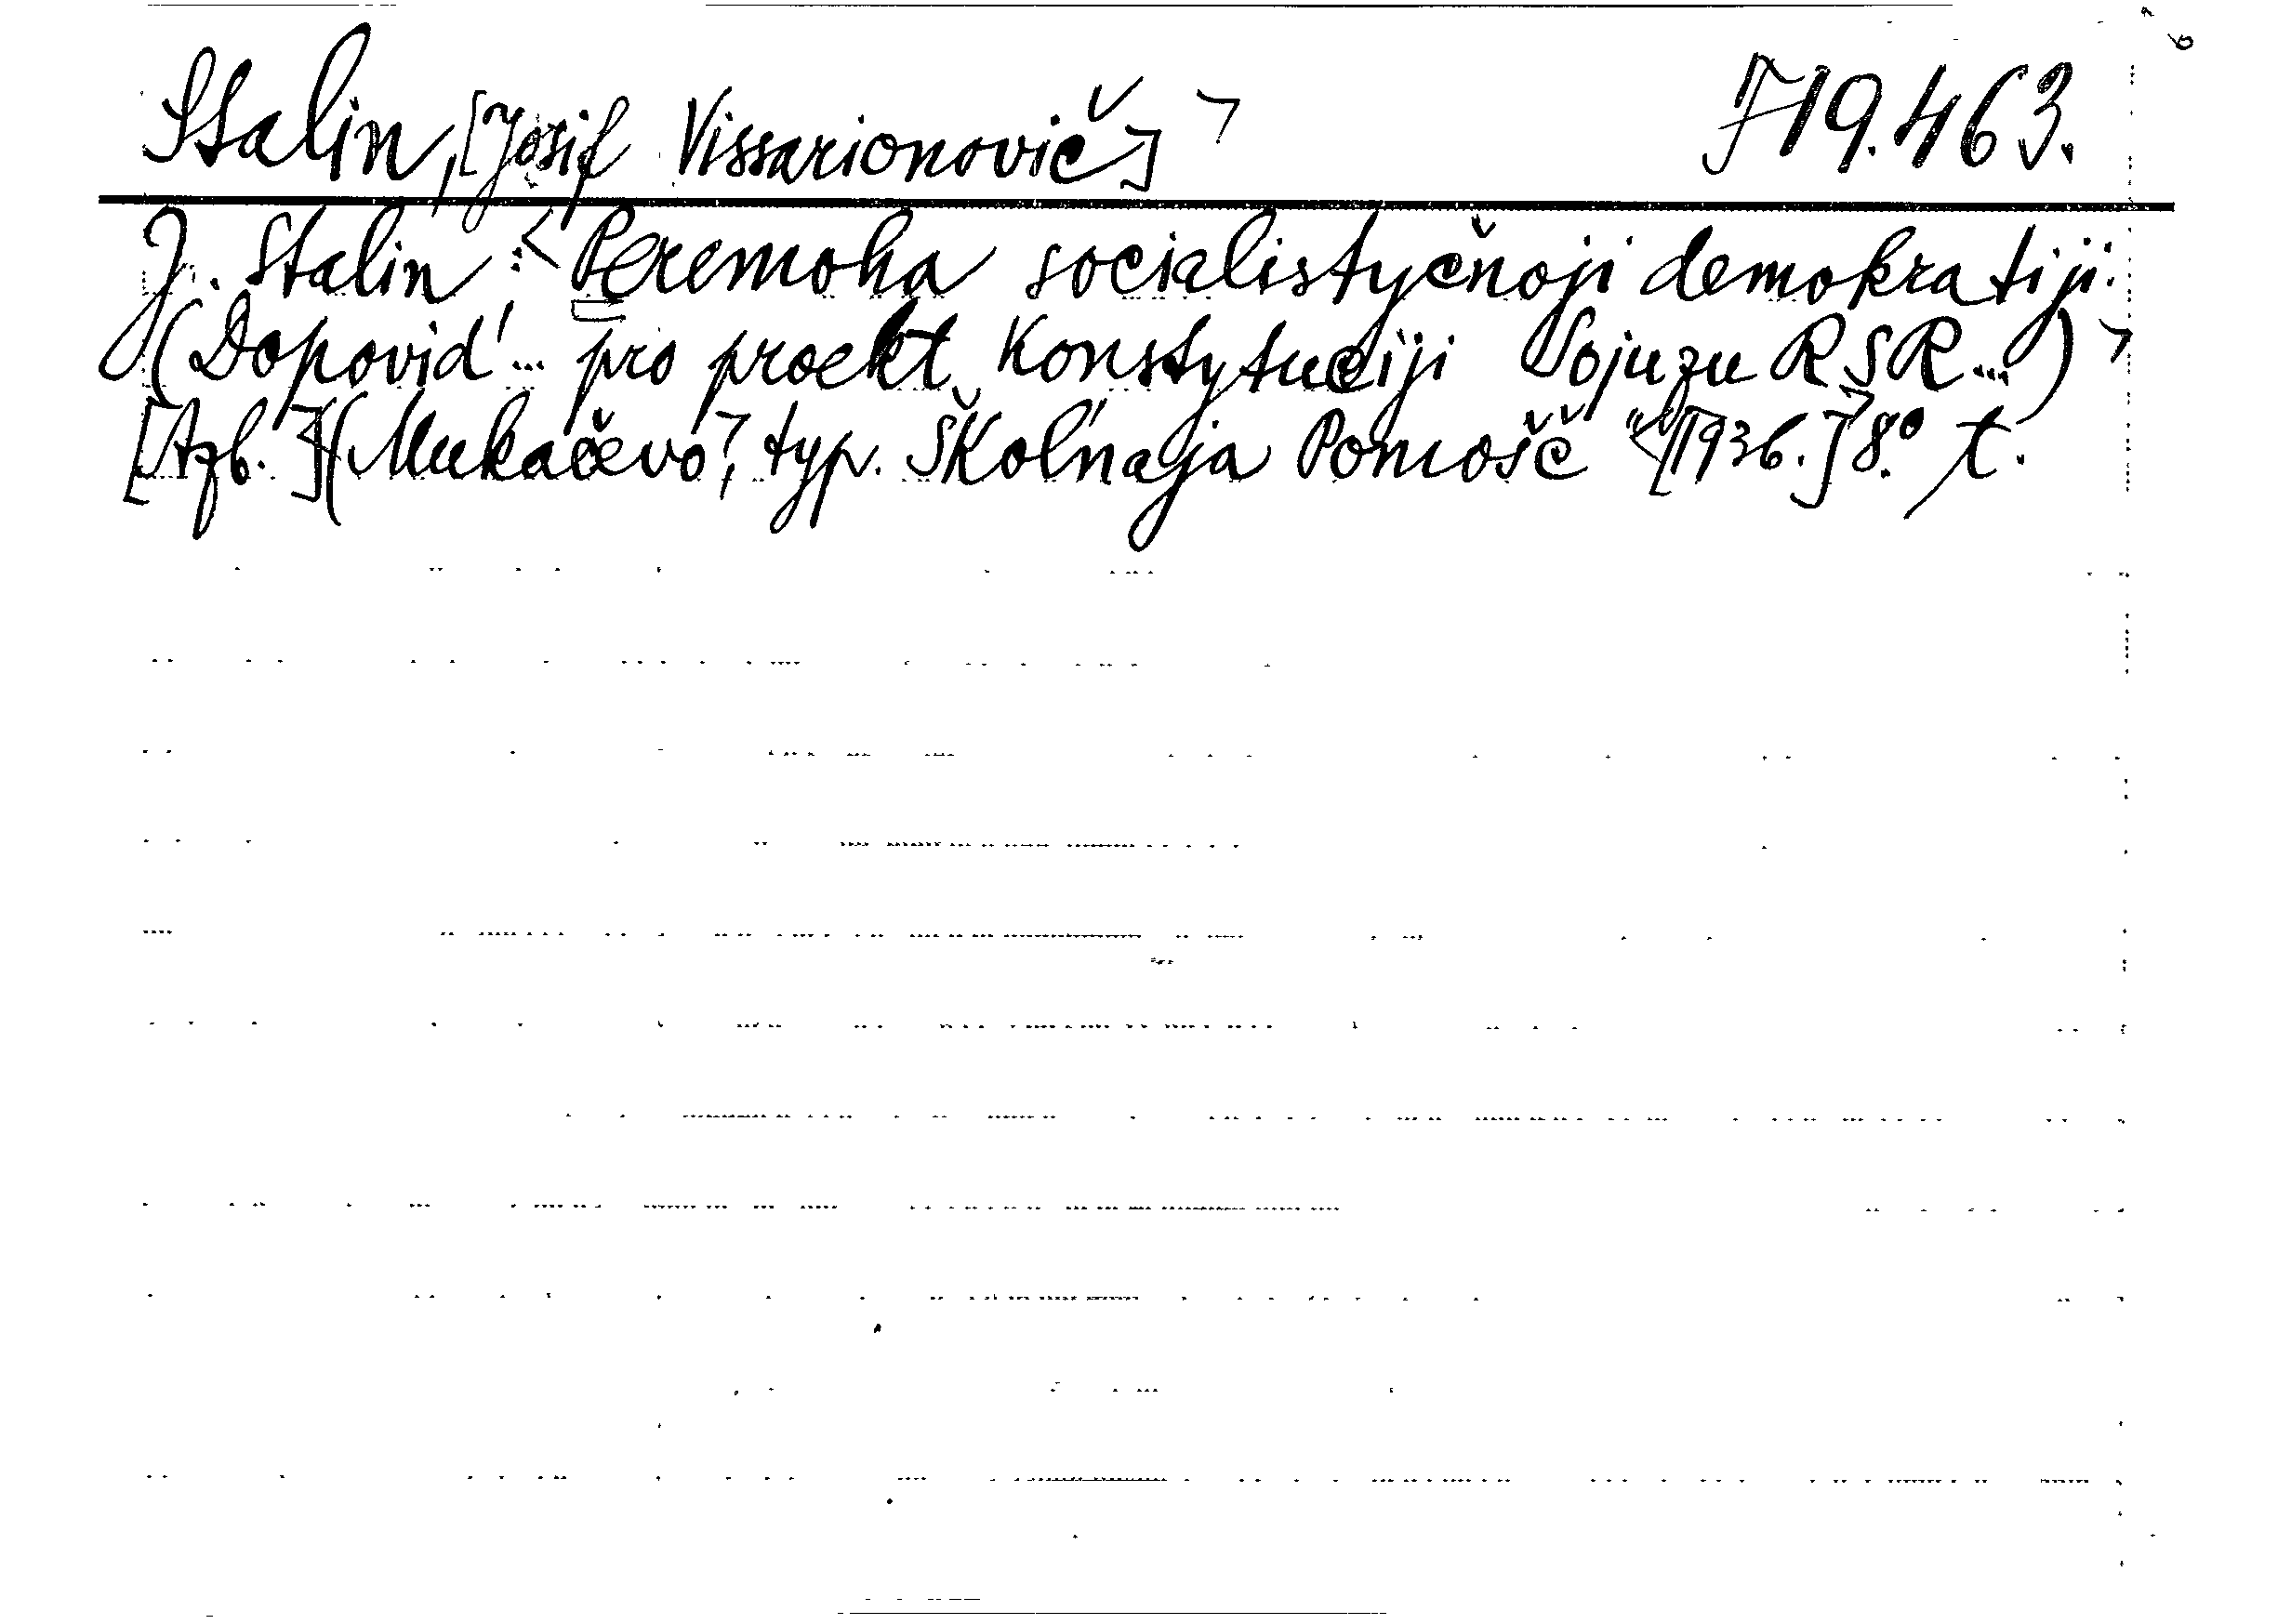 Stalin, [Josif Vissarionovič] ¬ J 19.463.
J. Stalin: <Peremoha socialistyčnoji demokratiji.
(Dopovid'... pro proekt Konstytuciji Sojuzu RSR...) ¬
[Azb.] (Mukačevo¬, typ. Škol'naja Pomošč" <[1936.]¬ 8.° t.